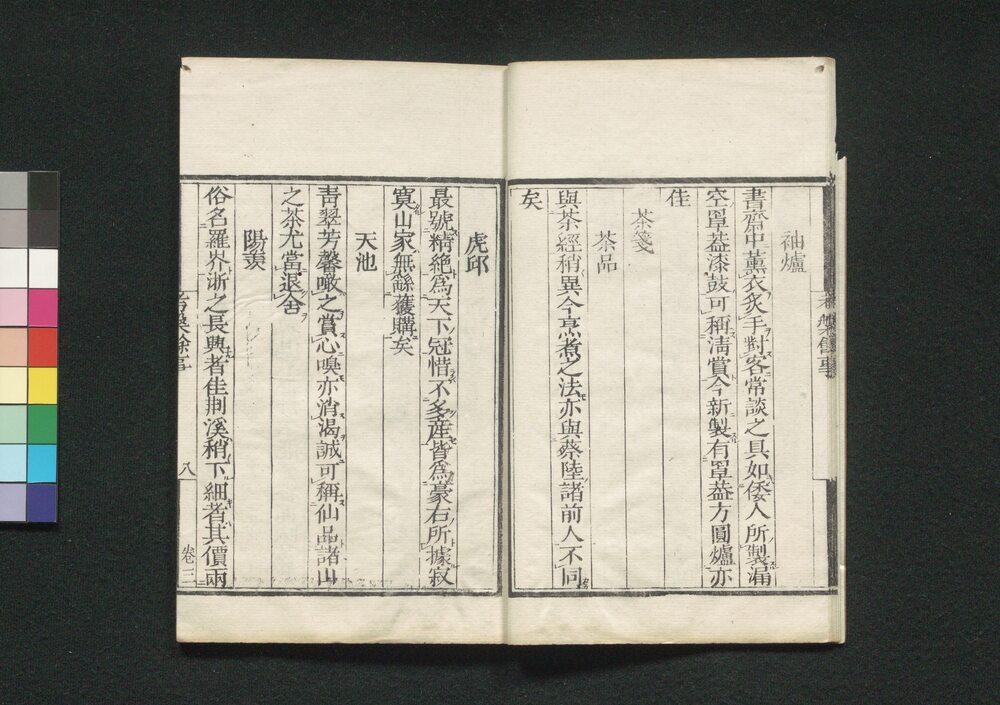 袖爐
書齋中薰衣炙手對客常談之具如倭人所製漏
空罩葢漆鼓可稱清賞今新製有罩葢方圓爐亦
佳
茶箋
茶品
與茶經稍異今烹煮之法亦與蔡陸諸前人不同
矣
虎邱
最號精絶爲天下冠惜不多產皆爲豪右所據寂
寞山家無繇獲購矣
天池
青翠芳馨噉之賞心嗅亦消渴誠可稱仙品諸山
之茶尤當退舍
陽羨
俗名羅岕浙之長興者佳荆溪稍下細者其價兩
考槃餘事
八
卷三